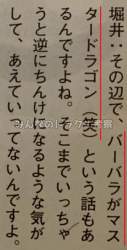 堀井：その辺で、バーバラがマス
タードラゴン（笑）という話もあ
るんですよね。そこまでいっちゃ
うと逆にちんけになるような気が
して、あえていってないんですよ。